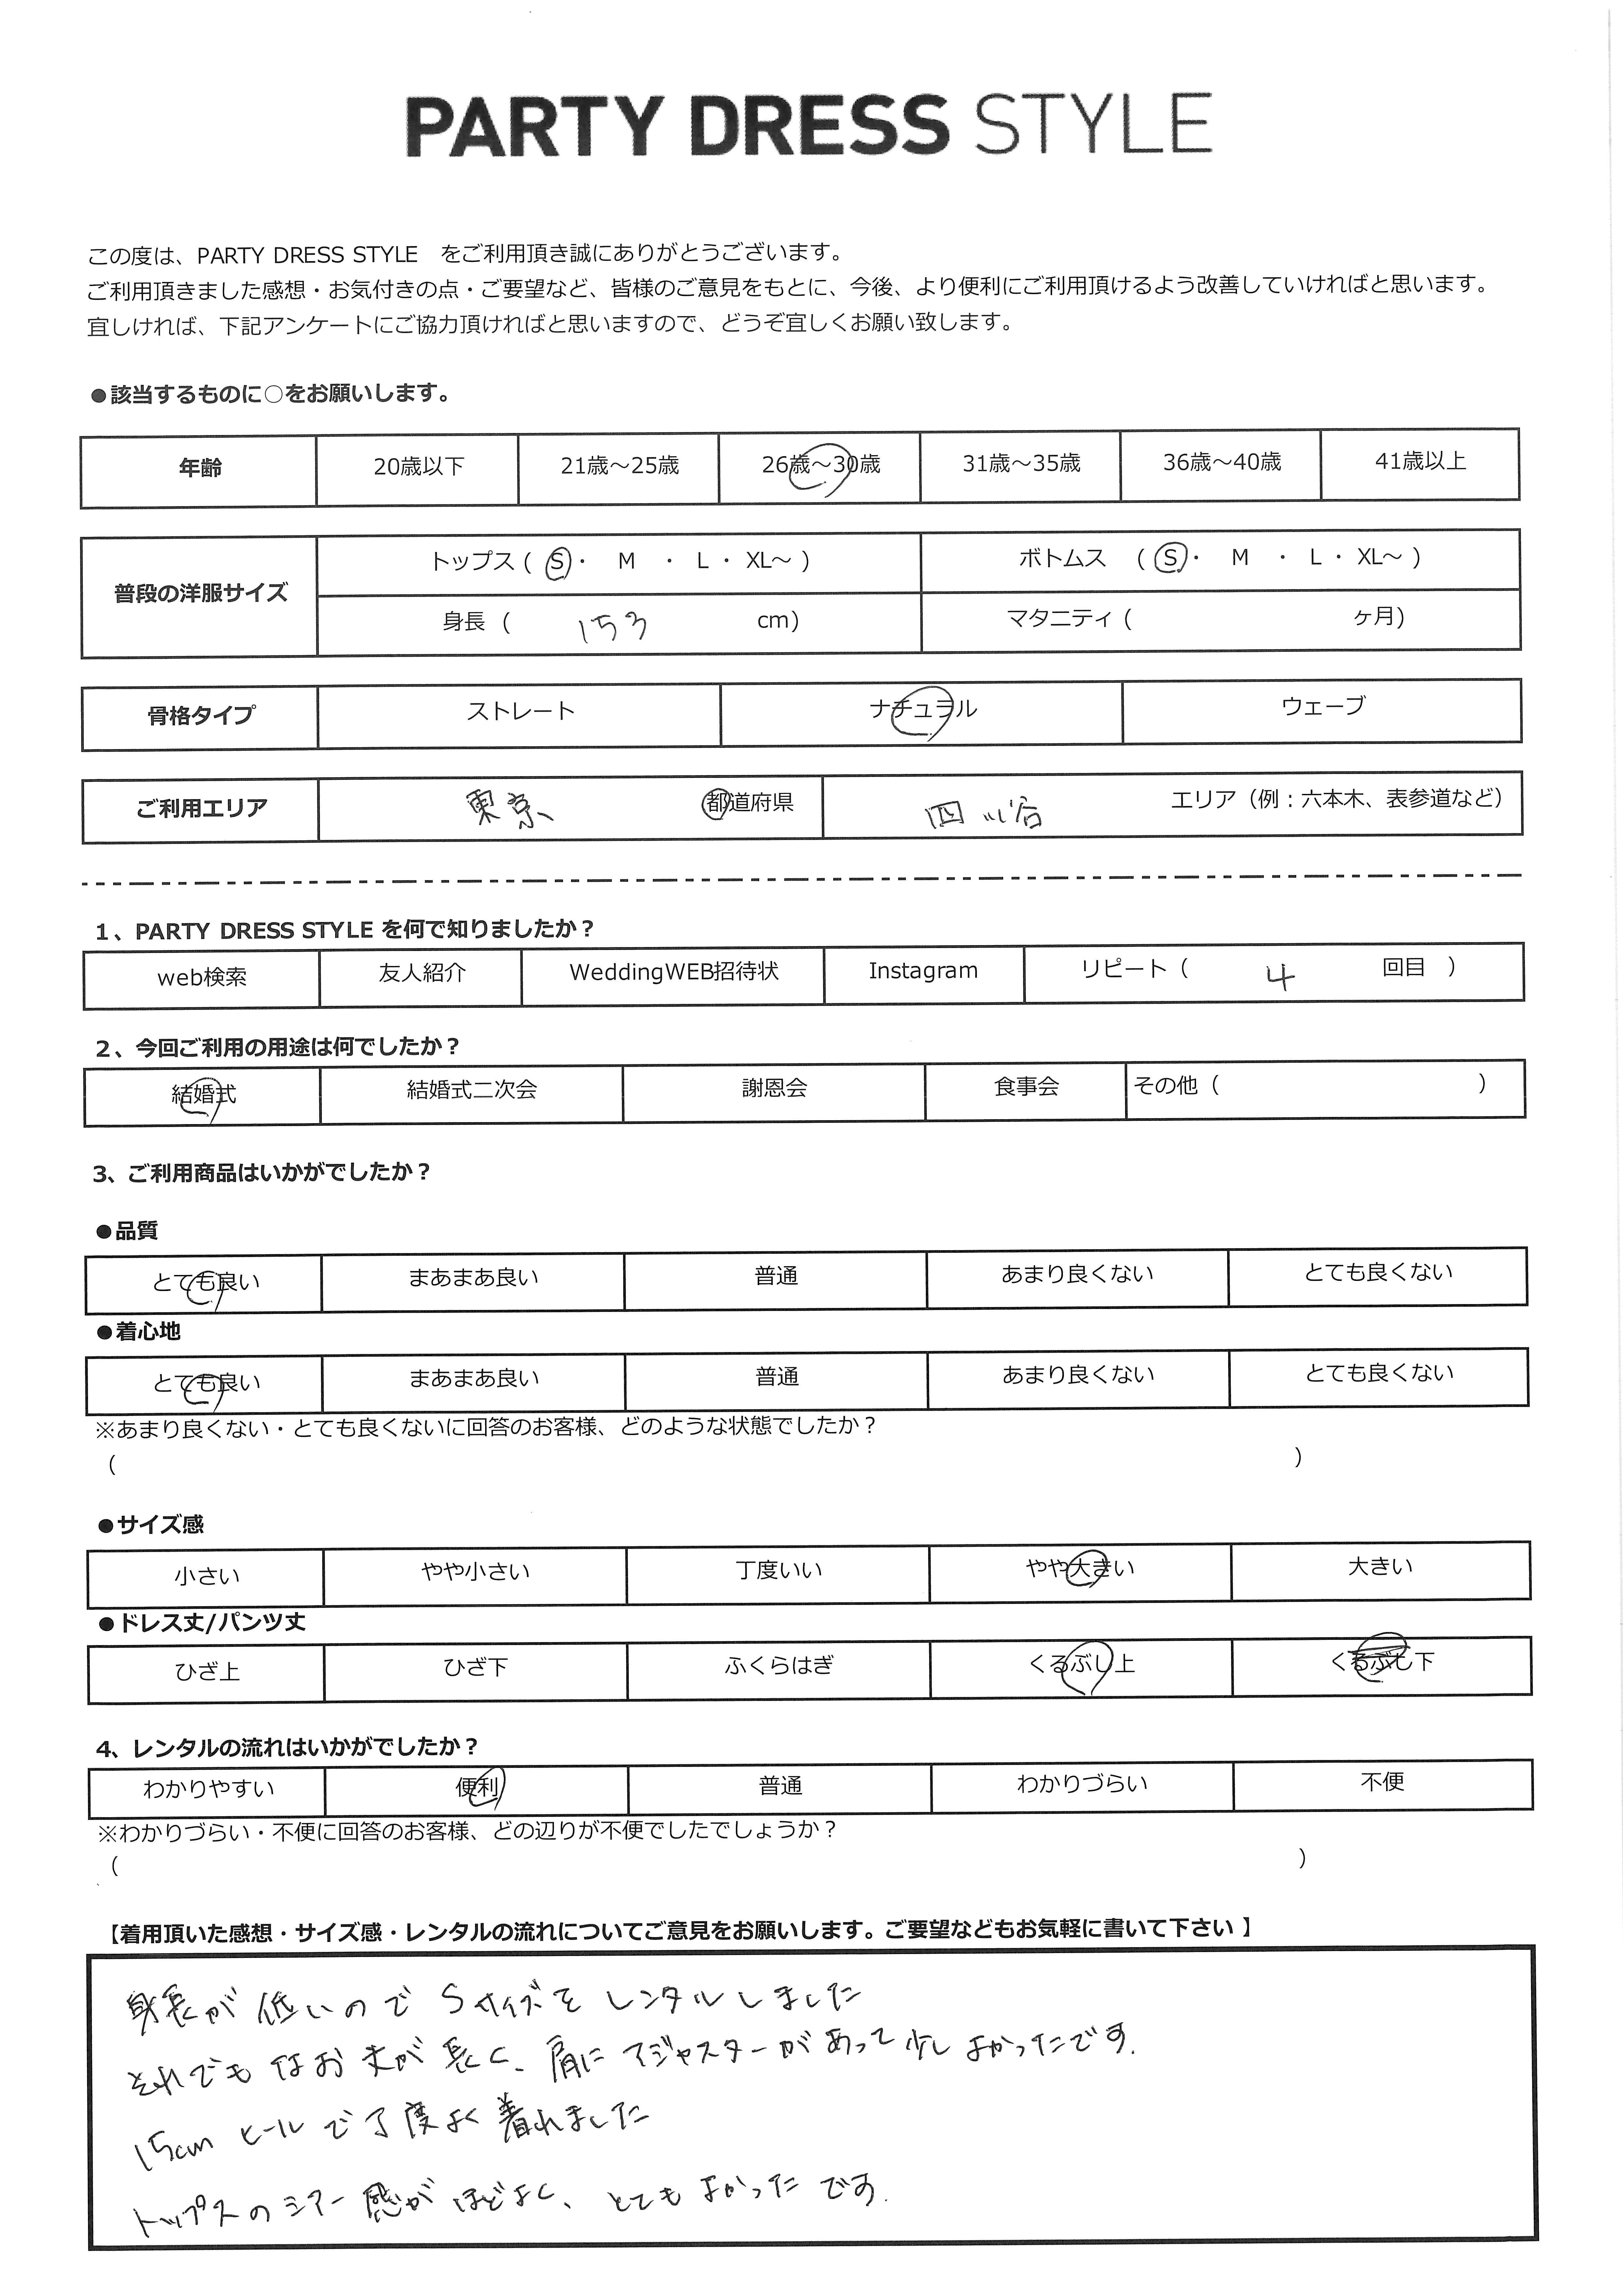 PARTY DRESS STYLE
この度は、PARTY DRESS STYLE をご利用頂き誠にありがとうございます。
ご利用頂きました感想・お気付きの点・ご要望など、皆様のご意見をもとに、今後、より便利にご利用頂けるよう改善していければと思います。
宜しければ、下記アンケートにご協力頂ければと思いますので、どうぞ宜しくお願い致します。
●該当するものに○をお願いします。
年齢 20歳以下 21歳～25歳 26歳～30歳 31歳～35歳 36歳～40歳 41歳以上
普段の洋服サイズ トップス ( S ・ M ・ L ・ XL～ ) ボトムス ( S ・ M ・ L ・ XL～ )
身長 ( 153 cm) マタニティ ( ヶ月)
骨格タイプ ストレート ナチュラル ウェーブ
ご利用エリア 東京 都道府県 四ツ谷 エリア（例：六本木、表参道など）
1、PARTY DRESS STYLE を何で知りましたか？
web検索 友人紹介 WeddingWEB招待状 Instagram リピート ( 4 回目 )
2、今回ご利用の用途は何でしたか？
結婚式 結婚式二次会 謝恩会 食事会 その他 ( )
3、ご利用商品はいかがでしたか？
●品質
とても良い まあまあ良い 普通 あまり良くない とても良くない
●着心地
とても良い まあまあ良い 普通 あまり良くない とても良くない
※あまり良くない・とても良くないに回答のお客様、どのような状態でしたか？
( )
●サイズ感
小さい やや小さい 丁度いい やや大きい 大きい
●ドレス丈/パンツ丈
ひざ上 ひざ下 ふくらはぎ くるぶし上 くるぶし下
4、レンタルの流れはいかがでしたか？
わかりやすい 便利 普通 わかりづらい 不便
※わかりづらい・不便に回答のお客様、どの辺りが不便でしたでしょうか？
( )
【着用頂いた感想・サイズ感・レンタルの流れについてご意見をお願いします。ご要望などもお気軽に書いて下さい 】
身長が低いので Sサイズを レンタルしました
それでもなお丈が長く、肩にアジャスターがあって少しよかったです.
15cm ヒールで丁度よく着れました
トップスのシアー感がほどよく、とてもよかったです.